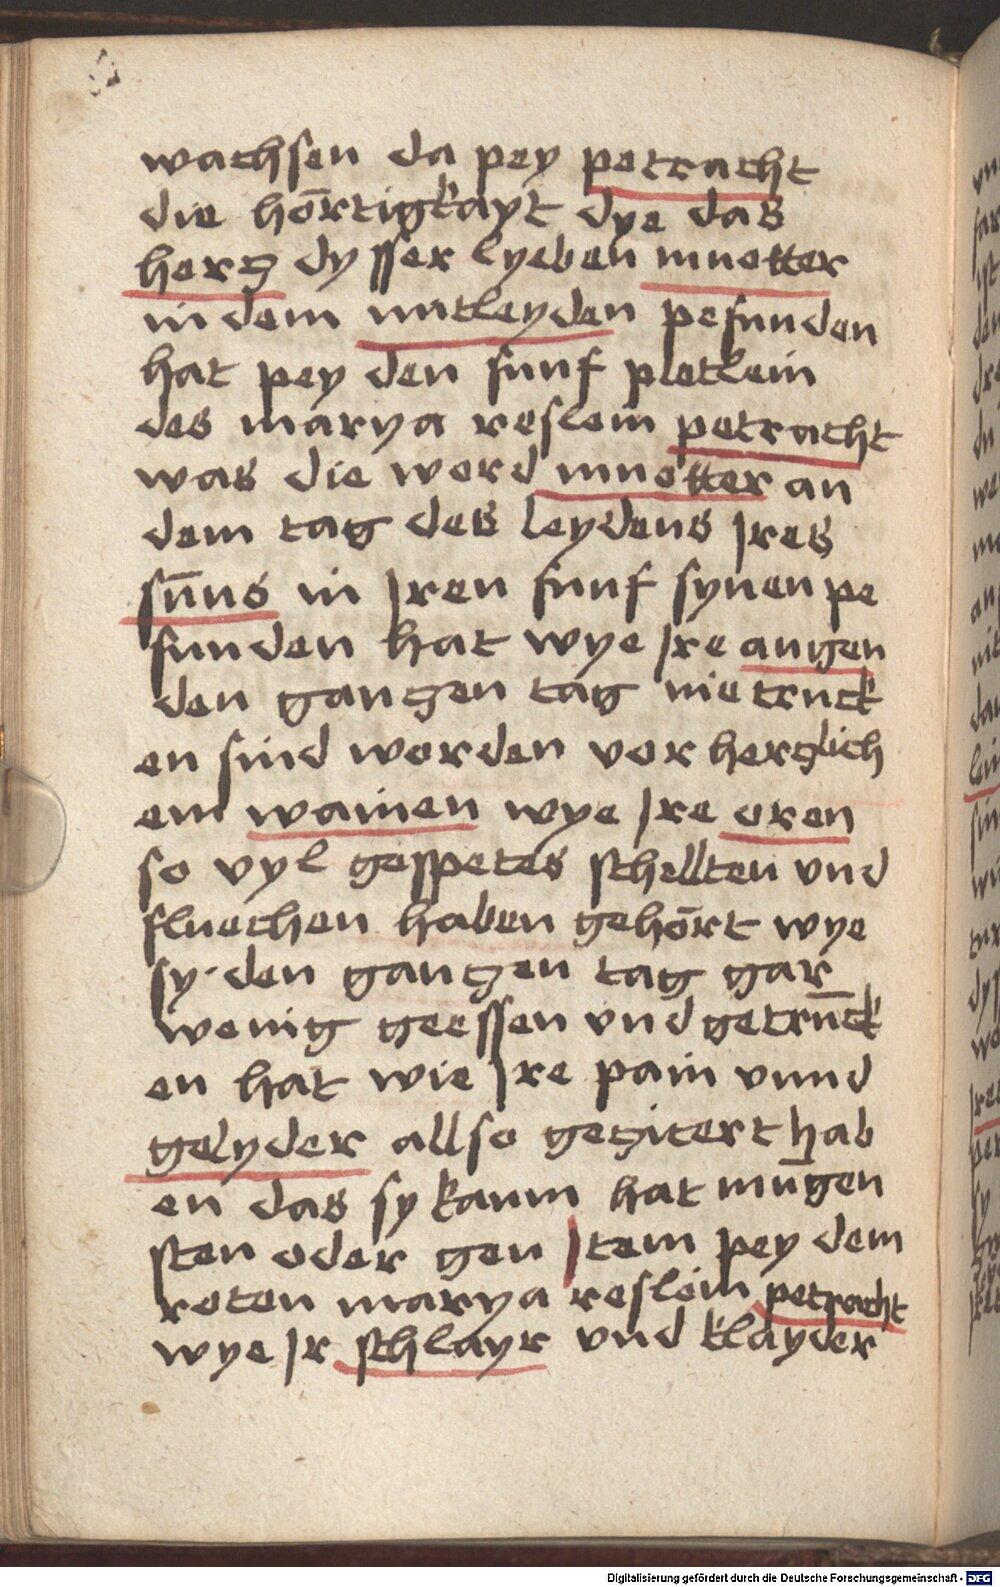 wachsen da pey petracht
die hōrtigkayt dye das
hercz dysser lyeben muotter
in dem mitleyden pefunden
hat pey den funf pletlein
des marya reslein petracht
was die werd muotter an
dem tag des leydens Jres
sūns in Jren funf synen pe
funden hat wye Jre augen
den ganczen tag nie truck
en sind worden vor herczlich
em wainen wye Jre oren
so vyl gespetes schellten vnd
fluechen haben gehōrt wye
sy den ganczen tag gar
wenig geessen vnd getrūck
en hat wie Jre pain vnnd
gelyder allso geczitert hab
en das sy kaum hat mūgen
sten oder gen Jtem pey dem
roten marya reslein petracht
wye Jr schlayr vnd klayder
Digitalisierung gefördert durch die Deutsche Forschungsgemeinschaft - DFG